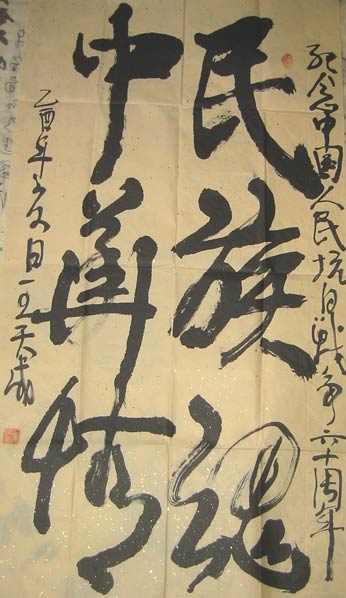 纪念中国人民抗日战争六十周年
民族魂
中華情
乙酉年日王天成